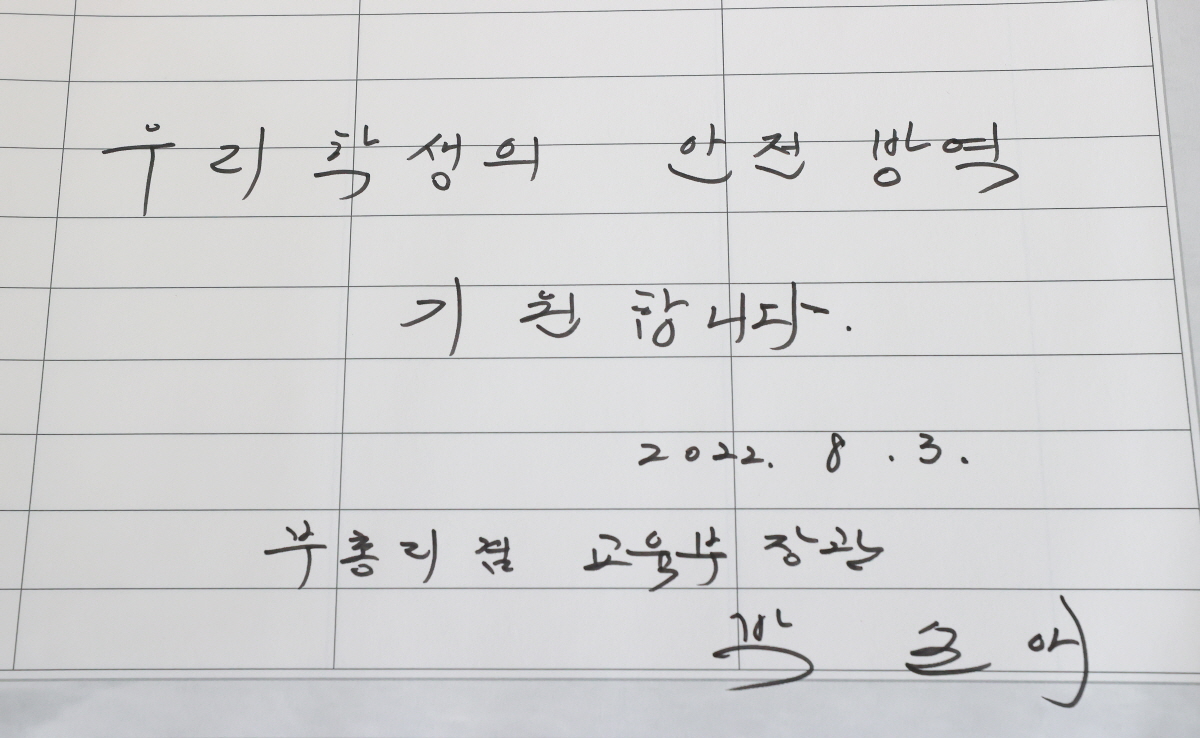 우리 학생의 안전 방역
기원합니다.
2022. 8. 3.
부총리겸 교육부장관
박순애